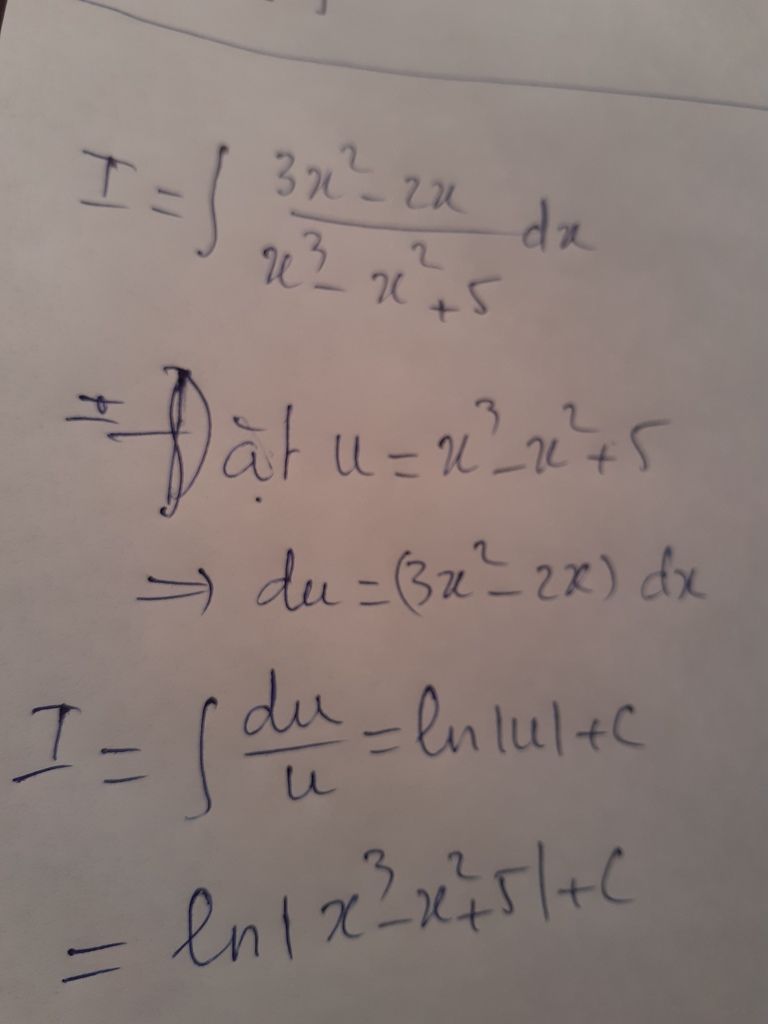 I = ∫ (3x² - 2x)/(x³ - x² + 5) dx
+ Đặt u = x³ - x² + 5
⇒ du = (3x² - 2x) dx
I = ∫ du/u = ln|u| + C
= ln|x³ - x² + 5| + C